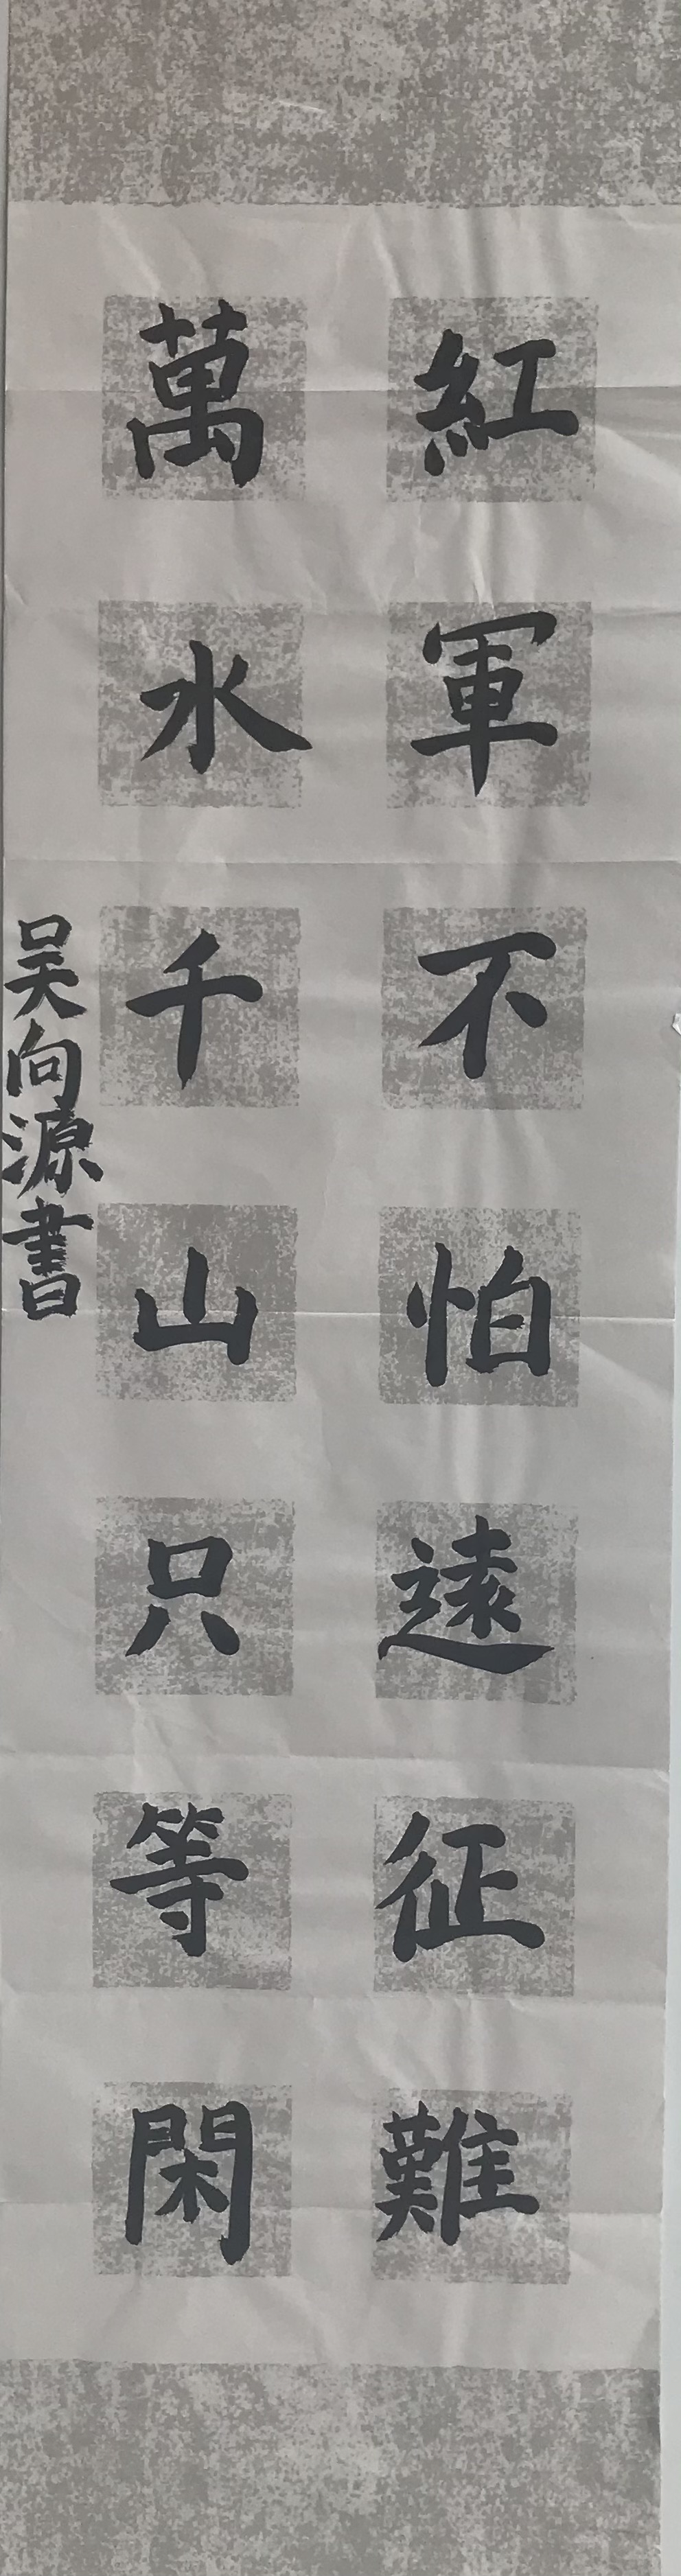 紅軍不怕遠征難
萬水千山只等閑
吴向源書